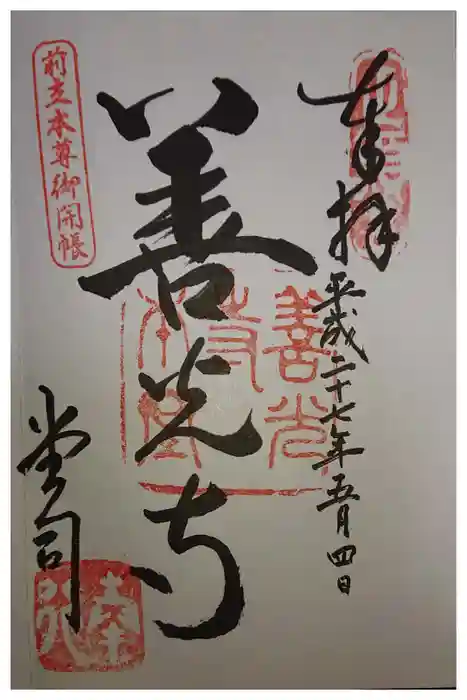 奉拝
平成二十七年五月四日
善光寺
善光寺本堂
前立本尊御開帳
堂司